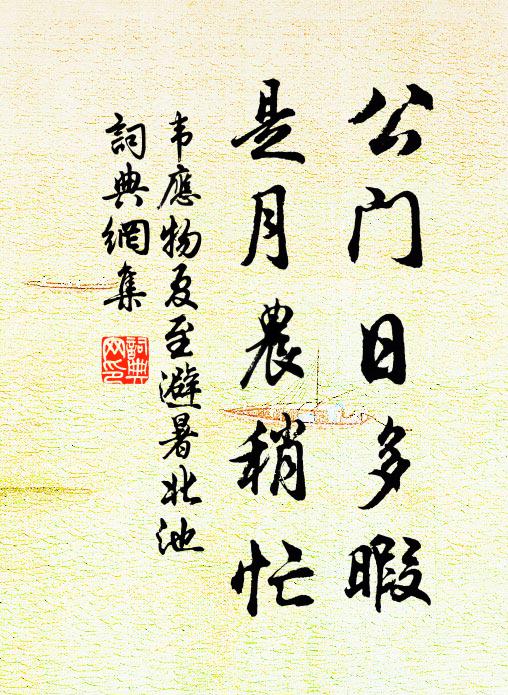 公门日多暇
是月農稍忙
韦應物夏至避暑北池
詞典網集
詞典网印